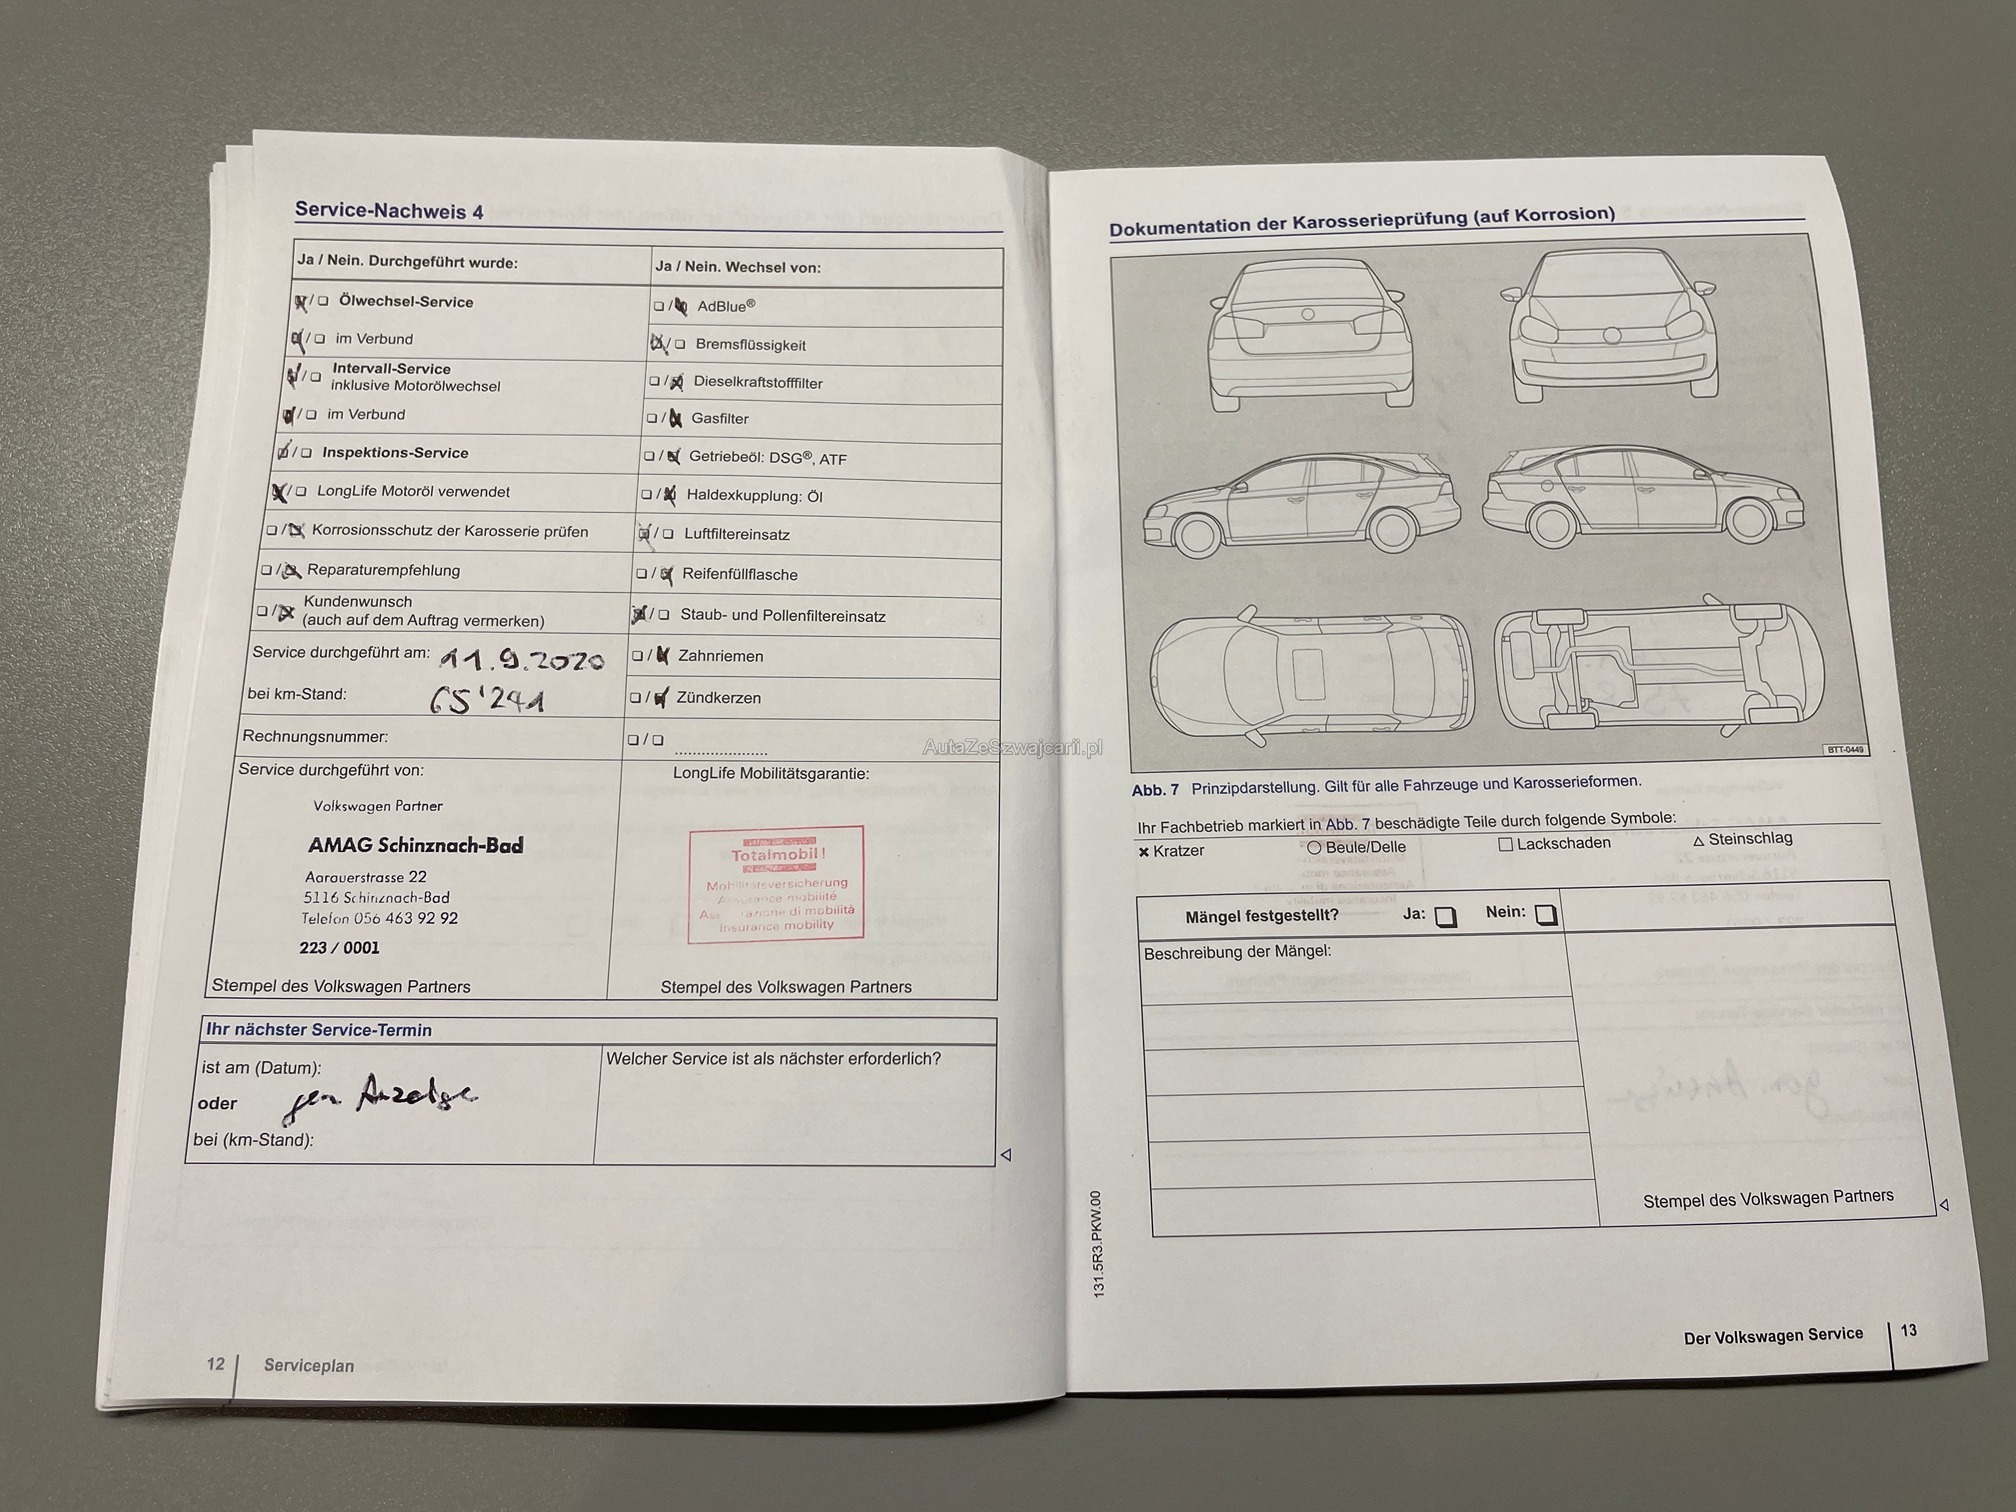 Service-Nachweis 4
Ja / Nein. Durchgeführt wurde:
Ölwechsel-Service
im Verbund
Intervall-Service
inklusive Motorölwechsel
im Verbund
Inspektions-Service
LongLife Motoröl verwendet
Korrosionsschutz der Karosserie prüfen
Reparaturempfehlung
Kundenwunsch
(auch auf dem Auftrag vermerken)
Service durchgeführt am: 11.9.2020
bei km-Stand: 65'241
Rechnungsnummer:
Ja / Nein. Wechsel von:
AdBlue®
Bremsflüssigkeit
Dieselkraftstofffilter
Gasfilter
Getriebeöl: DSG®, ATF
Haldexkupplung: Öl
Luftfiltereinsatz
Reifenfüllflasche
Staub- und Pollenfiltereinsatz
Zahnriemen
Zündkerzen
Service durchgeführt von:
Volkswagen Partner
AMAG Schinznach-Bad
Aarauerstrasse 22
5116 Schinznach-Bad
Telefon 056 463 92 92
223 / 0001
Stempel des Volkswagen Partners
LongLife Mobilitätsgarantie:
Totalmobil!
Mobilitätsversicherung
Assurance mobilité
Assicurazione di mobilità
Insurance mobility
Stempel des Volkswagen Partners
Ihr nächster Service-Termin
ist am (Datum):
oder gem Anzeige
bei (km-Stand):
Welcher Service ist als nächster erforderlich?
12 Serviceplan
AutaZeSzwajcarii.pl
Dokumentation der Karosserieprüfung (auf Korrosion)
BTT-0449
Abb. 7 Prinzipdarstellung. Gilt für alle Fahrzeuge und Karosserieformen.
Ihr Fachbetrieb markiert in Abb. 7 beschädigte Teile durch folgende Symbole:
Kratzer Beule/Delle Lackschaden Steinschlag
Mängel festgestellt? Ja: Nein:
Beschreibung der Mängel:
Stempel des Volkswagen Partners
131.5R3.PKW.00
Der Volkswagen Service 13